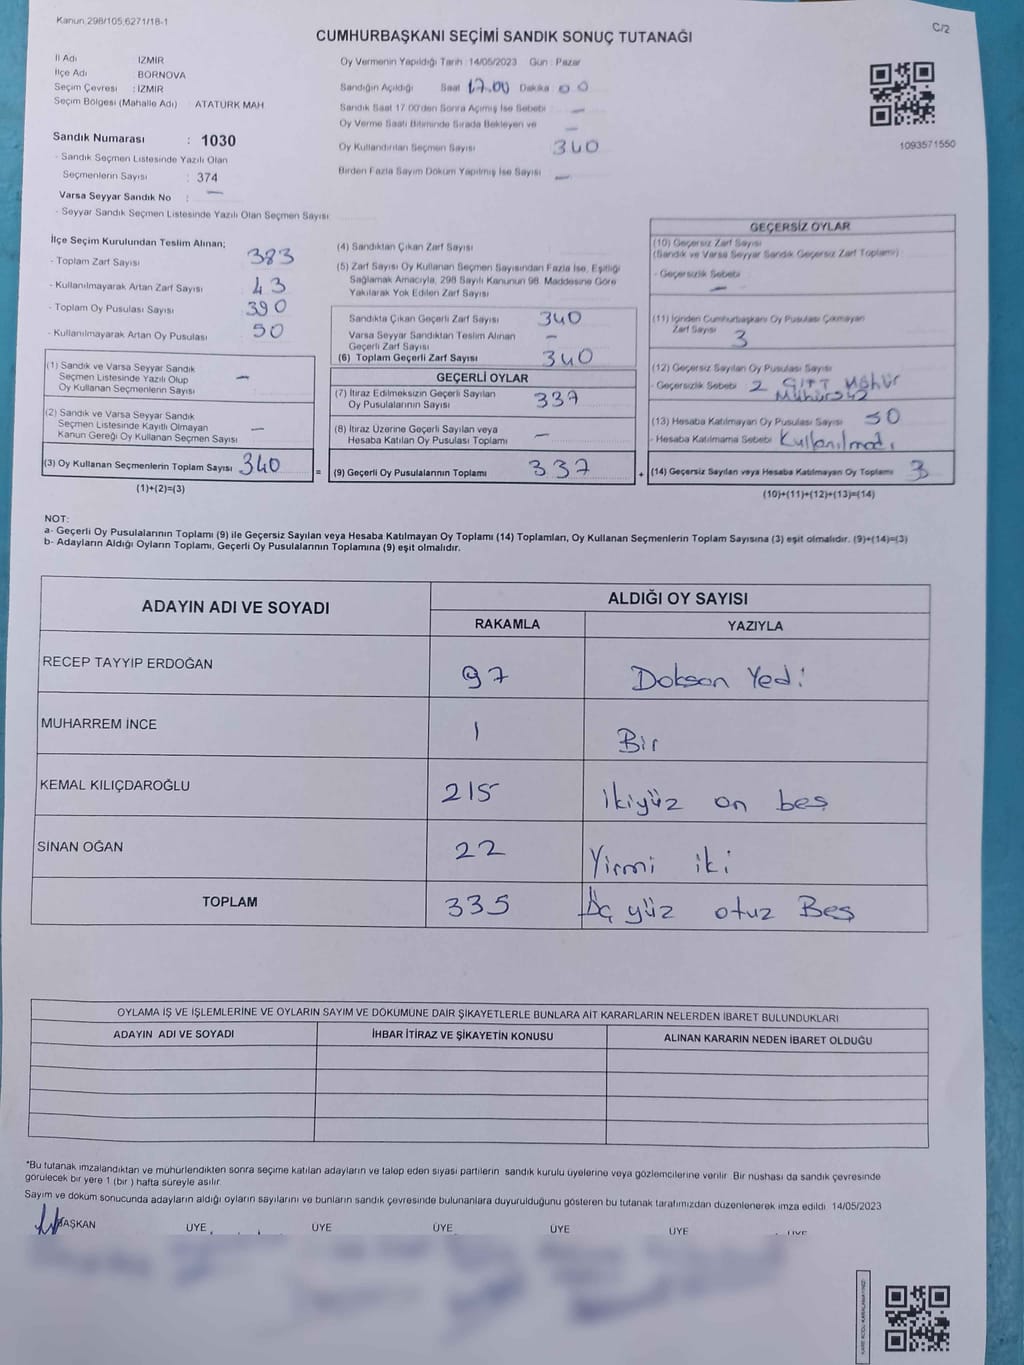 Kanun 298/105,6271/18-1
C/2
CUMHURBAŞKANI SEÇİMİ SANDIK SONUÇ TUTANAĞI
İl Adı İZMİR
İlçe Adı BORNOVA
Seçim Çevresi : İZMİR
Seçim Bölgesi (Mahalle Adı) : ATATÜRK MAH
Sandık Numarası : 1030
- Sandık Seçmen Listesinde Yazılı Olan
Seçmenlerin Sayısı : 374
Varsa Seyyar Sandık No : —
- Seyyar Sandık Seçmen Listesinde Yazılı Olan Seçmen Sayısı
Oy Vermenin Yapıldığı Tarih : 14/05/2023 Gün : Pazar
Sandığın Açıldığı Saat 17.00 Dakika 00
Sandık Saat 17.00'den Sonra Açılmış İse Sebebi —
Oy Verme Saati Bitiminde Sırada Bekleyen ve —
Oy Kullandırılan Seçmen Sayısı 340
Birden Fazla Sayım Döküm Yapılmış İse Sayısı —
1093571550
İlçe Seçim Kurulundan Teslim Alınan;
- Toplam Zarf Sayısı 383
- Kullanılmayarak Artan Zarf Sayısı 43
- Toplam Oy Pusulası Sayısı 390
- Kullanılmayarak Artan Oy Pusulası 50
(1) Sandık ve Varsa Seyyar Sandık
Seçmen Listesinde Yazılı Olup
Oy Kullanan Seçmenlerin Sayısı —
(2) Sandık ve Varsa Seyyar Sandık
Seçmen Listesinde Kayıtlı Olmayan
Kanun Gereği Oy Kullanan Seçmen Sayısı —
(3) Oy Kullanan Seçmenlerin Toplam Sayısı 340 =
(1)+(2)=(3)
(4) Sandıktan Çıkan Zarf Sayısı
(5) Zarf Sayısı Oy Kullanan Seçmen Sayısından Fazla İse, Eşitliği
Sağlamak Amacıyla, 298 Sayılı Kanunun 98. Maddesine Göre
Yakılarak Yok Edilen Zarf Sayısı
Sandıkta Çıkan Geçerli Zarf Sayısı 340
Varsa Seyyar Sandıktan Teslim Alınan
Geçerli Zarf Sayısı —
(6) Toplam Geçerli Zarf Sayısı 340
GEÇERLİ OYLAR
(7) İtiraz Edilmeksizin Geçerli Sayılan
Oy Pusulalarının Sayısı 337
(8) İtiraz Üzerine Geçerli Sayılan veya
Hesaba Katılan Oy Pusulası Toplamı —
(9) Geçerli Oy Pusulalarının Toplamı 337 +
GEÇERSİZ OYLAR
(10) Geçersiz Zarf Sayısı
(Sandık ve Varsa Seyyar Sandık Geçersiz Zarf Toplamı)
- Geçersizlik Sebebi —
(11) İçinden Cumhurbaşkanı Oy Pusulası Çıkmayan
Zarf Sayısı 3
(12) Geçersiz Sayılan Oy Pusulası Sayısı
- Geçersizlik Sebebi 2 Çift Mühür
(13) Hesaba Katılmayan Oy Pusulası Sayısı 50
- Hesaba Katılmama Sebebi Kullanılmadı
(14) Geçersiz Sayılan veya Hesaba Katılmayan Oy Toplamı 3
(10)+(11)+(12)+(13)=(14)
NOT:
a- Geçerli Oy Pusulalarının Toplamı (9) ile Geçersiz Sayılan veya Hesaba Katılmayan Oy Toplamı (14) Toplamları, Oy Kullanan Seçmenlerin Toplam Sayısına (3) eşit olmalıdır. (9)+(14)=(3)
b- Adayların Aldığı Oyların Toplamı, Geçerli Oy Pusulalarının Toplamına (9) eşit olmalıdır.
ADAYIN ADI VE SOYADI ALDIĞI OY SAYISI
RAKAMLA YAZIYLA
RECEP TAYYİP ERDOĞAN 97 Doksan Yedi
MUHARREM İNCE 1 Bir
KEMAL KILIÇDAROĞLU 215 ikiyüz on beş
SİNAN OĞAN 22 Yirmi iki
TOPLAM 335 Üç yüz otuz Beş
OYLAMA İŞ VE İŞLEMLERİNE VE OYLARIN SAYIM VE DÖKÜMÜNE DAİR ŞİKAYETLERLE BUNLARA AİT KARARLARIN NELERDEN İBARET BULUNDUKLARI
ADAYIN ADI VE SOYADI İHBAR İTİRAZ VE ŞİKAYETİN KONUSU ALINAN KARARIN NEDEN İBARET OLDUĞU
*Bu tutanak imzalandıktan ve mühürlendikten sonra seçime katılan adayların ve talep eden siyasi partilerin sandık kurulu üyelerine veya gözlemcilerine verilir. Bir nüshası da sandık çevresinde
görülecek bir yere 1 (bir ) hafta süreyle asılır.
Sayım ve döküm sonucunda adayların aldığı oyların sayılarını ve bunların sandık çevresinde bulunanlara duyurulduğunu gösteren bu tutanak tarafımızdan düzenlenerek imza edildi. 14/05/2023
BAŞKAN ÜYE ÜYE ÜYE ÜYE ÜYE ÜYE